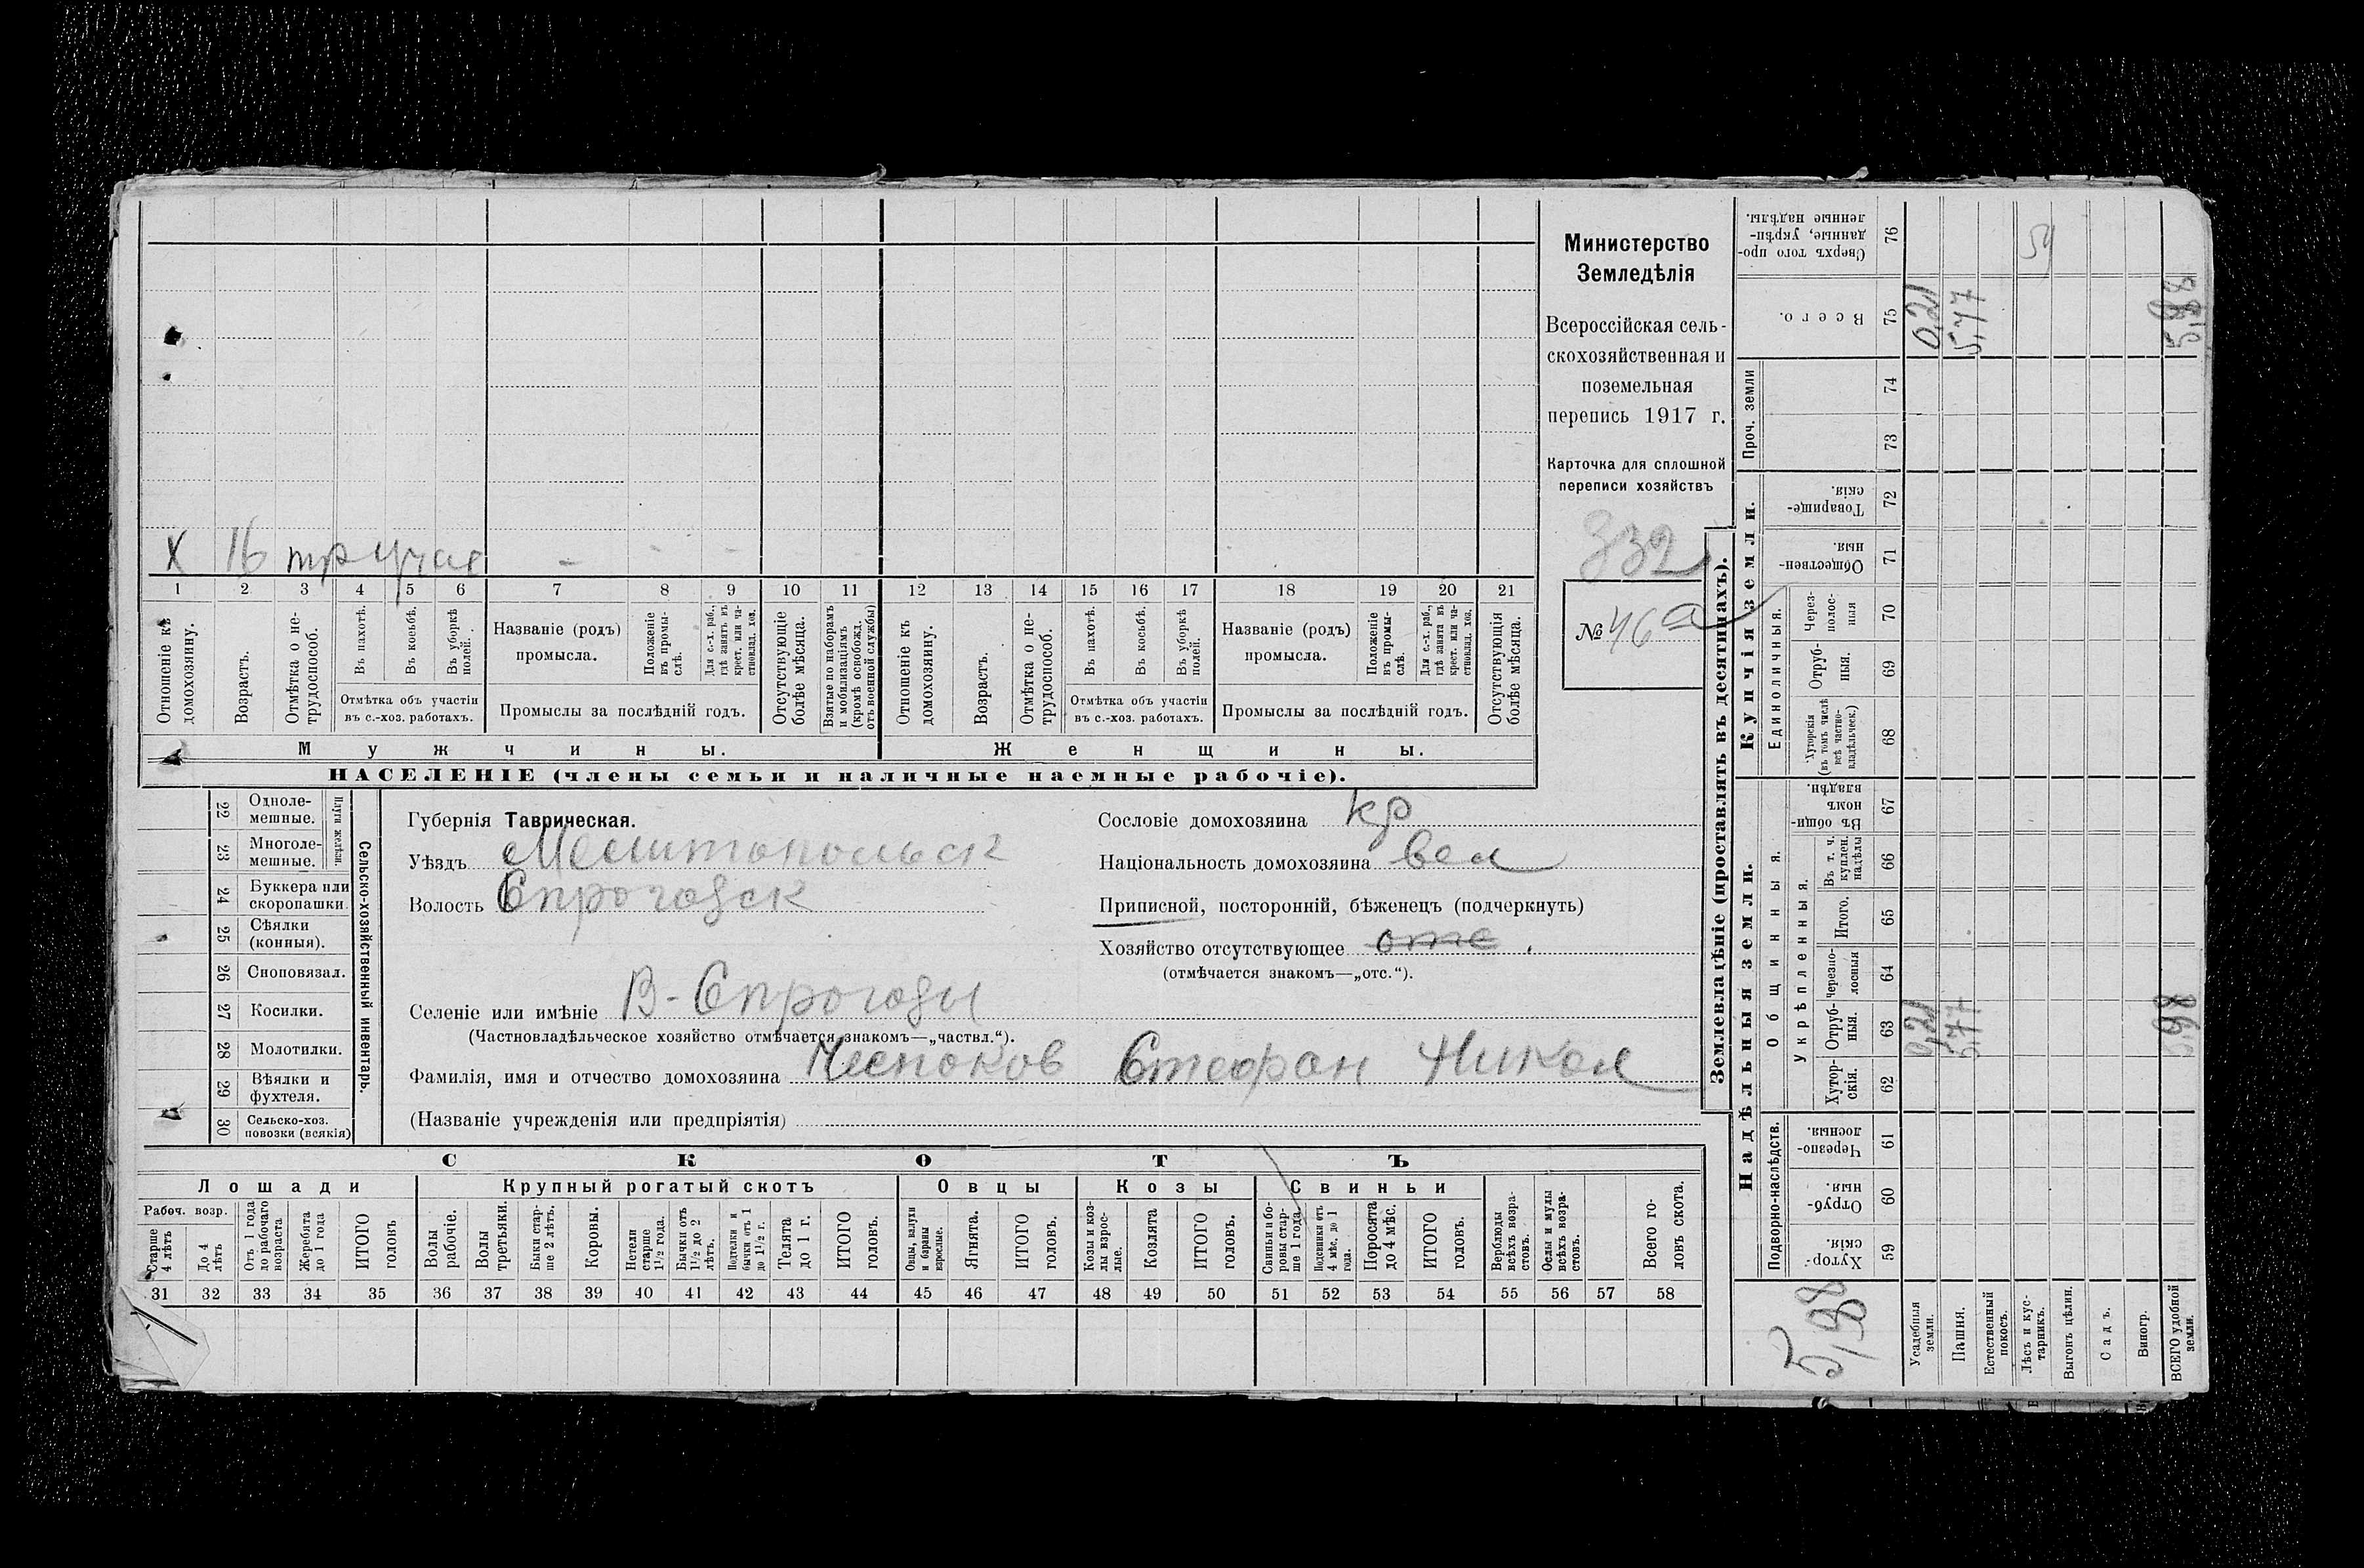 Министерство
Земледѣлія
Всероссійская сель-
скохозяйственная и
поземельная
перепись 1917 г.
Карточка для сплошной
переписи хозяйствъ
332
№ 46а
X 16 - - -
1 2 3 4 5 6 7 8 9 10 11 12 13 14 15 16 17 18 19 20 21
Отношеніе къ домохозяину.
Возрастъ.
Отмѣтка о не-трудоспособ.
Въ пахотѣ.
Въ косьбѣ.
Въ уборкѣ полей.
Отмѣтка объ участіи
въ с.-хоз. работахъ.
Названіе (родъ)
промысла.
Положеніе въ промы-слѣ.
Для с.-х. раб., гдѣ занятъ въ крест. или ча-стновлад. хоз.
Промыслы за послѣдній годъ.
Отсутствующіе болѣе мѣсяца.
Взятые по наборамъ и мобилизаціямъ (кромѣ освобожд. отъ военной службы)
Отношеніе къ домохозяину.
Возрастъ.
Отмѣтка о не-трудоспособ.
Въ пахотѣ.
Въ косьбѣ.
Въ уборкѣ полей.
Отмѣтка объ участіи
въ с.-хоз. работахъ.
Названіе (родъ)
промысла.
Положеніе въ промы-слѣ.
Для с.-х. раб., гдѣ занята въ крест. или ча-стновлад. хоз.
Промыслы за послѣдній годъ.
Отсутствующія болѣе мѣсяца.
Мужчины.
Женщины.
НАСЕЛЕНІЕ (члены семьи и наличные наемные рабочіе).
22 Одноле-мешные.
23 Многоле-мешные.
Плуги желѣзн.
24 Буккера или скоропашки.
25 Сѣялки (конныя).
26 Сноповязал.
27 Косилки.
28 Молотилки.
29 Вѣялки и фухтеля.
30 Сельско-хоз. повозки (всякія)
Сельско-хозяйственный инвентарь.
Губернія Таврическая.
Уѣздъ Мелитопольск
Волость
Селеніе или имѣніе
(Частновладѣльческое хозяйство отмѣчается знакомъ—„частвл.“).
Фамилія, имя и отчество домохозяина Стефан Никол
(Названіе учрежденія или предпріятія)
Сословіе домохозяина кр
Національность домохозяина вел
Приписной, посторонній, бѣженецъ (подчеркнуть)
Хозяйство отсутствующее отс
(отмѣчается знакомъ—„отс.“).
СКОТЪ
Лошади
Крупный рогатый скотъ
Овцы
Козы
Свиньи
Рабоч. возр.
Старше 4 лѣтъ
До 4 лѣтъ
Отъ 1 года до рабочаго возраста
Жеребята до 1 года
ИТОГО головъ
Волы рабочіе.
Волы третьяки.
Быки стар-ше 2 лѣтъ.
Коровы.
Нетели старше 1½ года.
Бычки отъ 1½ до 2 лѣтъ.
Подтелки и бычки отъ 1 до 1½ г.
Телята до 1 г.
ИТОГО головъ.
Овцы, валухи и бараны взрослые.
Ягнята.
ИТОГО головъ.
Козы и коз-лы взрос-лые.
Козлята
ИТОГО головъ.
Свиньи и бо-ровы стар-ше 1 года.
Подсвинки отъ 4 мѣс. до 1 года.
Поросята до 4 мѣс.
ИТОГО головъ.
Верблюды всѣхъ возра-стовъ.
Ослы и мулы всѣхъ возра-стовъ.
Всего го-ловъ скота.
31 32 33 34 35 36 37 38 39 40 41 42 43 44 45 46 47 48 49 50 51 52 53 54 55 56 57 58
Землевладѣніе (проставлять въ десятинахъ).
Надѣльныя земли.
Купчія земли.
Проч. земли
Подворно-наслѣдств.
Общинныя.
Укрѣпленныя.
Единоличныя.
59 Хутор-скія.
60 Отруб-ныя.
61 Черезпо-лосныя.
62 Хутор-скія.
63 Отруб-ныя. 0,21 5,77 5,98
64 Черезпо-лосныя
65 Итого.
66 Въ т. ч. куплен. надѣлы
67 Въ общи-номъ владѣн.
68 Хуторскія (въ томъ числѣ всѣ частно-владѣльческ.)
69 Отруб-ныя.
70 Через-полос-ныя
71 Обществен-ныя.
72 Товарище-скія.
73
74
75 Всего. 0,21 5,77 5,98
76 Сверхъ того про-данные, укрѣп-ленные надѣлы.
5,98
Усадебныя земли.
Пашня.
Естественный покосъ.
Лѣсъ и кус-тарникъ.
Выгонъ цѣлин.
Садъ.
Виногр.
ВСЕГО удобной земли.